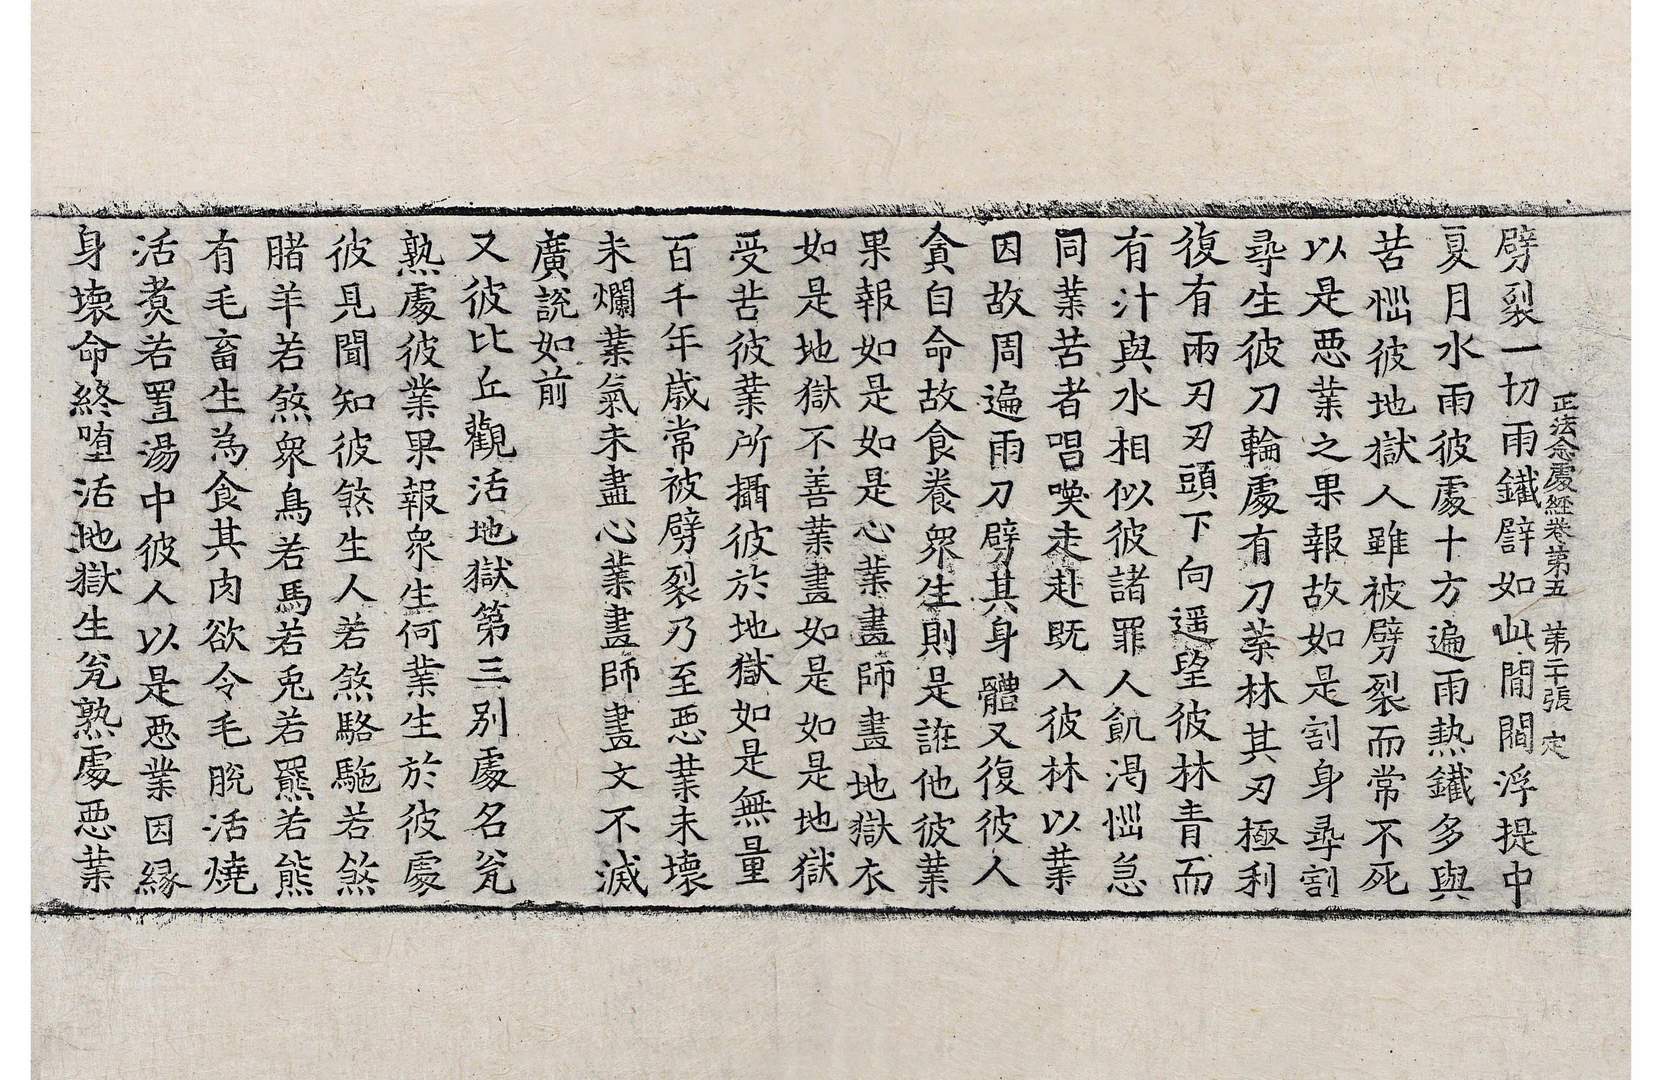 正法念處經卷第五 第二十張 定
劈裂一切雨鐵譬如此閒閻浮提中
夏月水雨彼處十方遍雨熱鐵多與
苦惱彼地獄人雖被劈裂而常不死
以是惡業之果報故如是割身尋割
尋生彼刀輪處有刀葉林其刃極利
復有兩刃刃頭下向遥望彼林青而
有汁與水相似彼諸罪人飢渴惱急
同業苦者唱喚走赴既入彼林以業
因故周遍雨刀劈其身體又復彼人
貪自命故食養衆生則是誑他彼業
果報如是如是心業畫師畫地獄衣
如是地獄不善業畫如是如是地獄
受苦彼業所攝彼於地獄如是無量
百千年歲常被劈裂乃至惡業未壞
未爛業氣未盡心業畫師畫文不滅
廣說如前
又彼比丘觀活地獄第三別處名瓮
熟處彼業果報衆生何業生於彼處
彼見聞知彼煞生人若煞駱駞若煞
賭羊若煞衆鳥若馬若兎若羆若熊
有毛畜生為食其肉欲令毛脫活燒
活煑若置湯中彼人以是惡業因緣
身壞命終墮活地獄生瓮熟處惡業